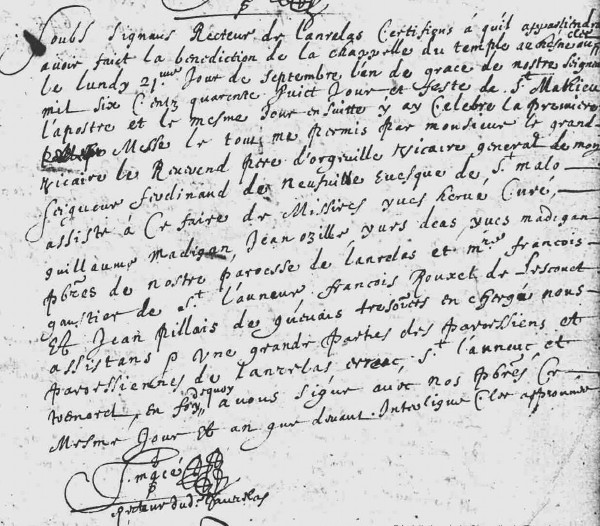 Soubs signans Recteur de lanrelas Certifions à quil appartiendra
avoir faict la benediction de la chappelle du temple
le lundy 21me Jour de septembre l'an de grace de nostre seigneur
mil six Centz quarente huict Jour et feste de St Mathieu
l'apostre et le mesme Jour ensuitte y ay Celebré la premiere
Messe le tout me permis par monsieur le grand
vicaire le Reuerend pere d'orgeuille vicaire general de mon
seigneur ferdinand de neufuille euesque de St malo
assisté à Ce faire de Missires yues herue Curé,
guillaume madigan, Jean ozille yues deas yues madigan
pbres de nostre paroesse de lanrelas et mre francois
gaultier de St launeuc francois Rouxel de Lescouet
Et Jean pillais de tresoriers en charge nous
assistans p vne grande parties des paroessiens et
paroessiennes de lanrelas St launeuc et
en foy dequoy auons signé auec nos pbres Ce
Mesme Jour et an que deuant. Interligne Clec approuuée
J. macé
Recteur dud. Lanrelas